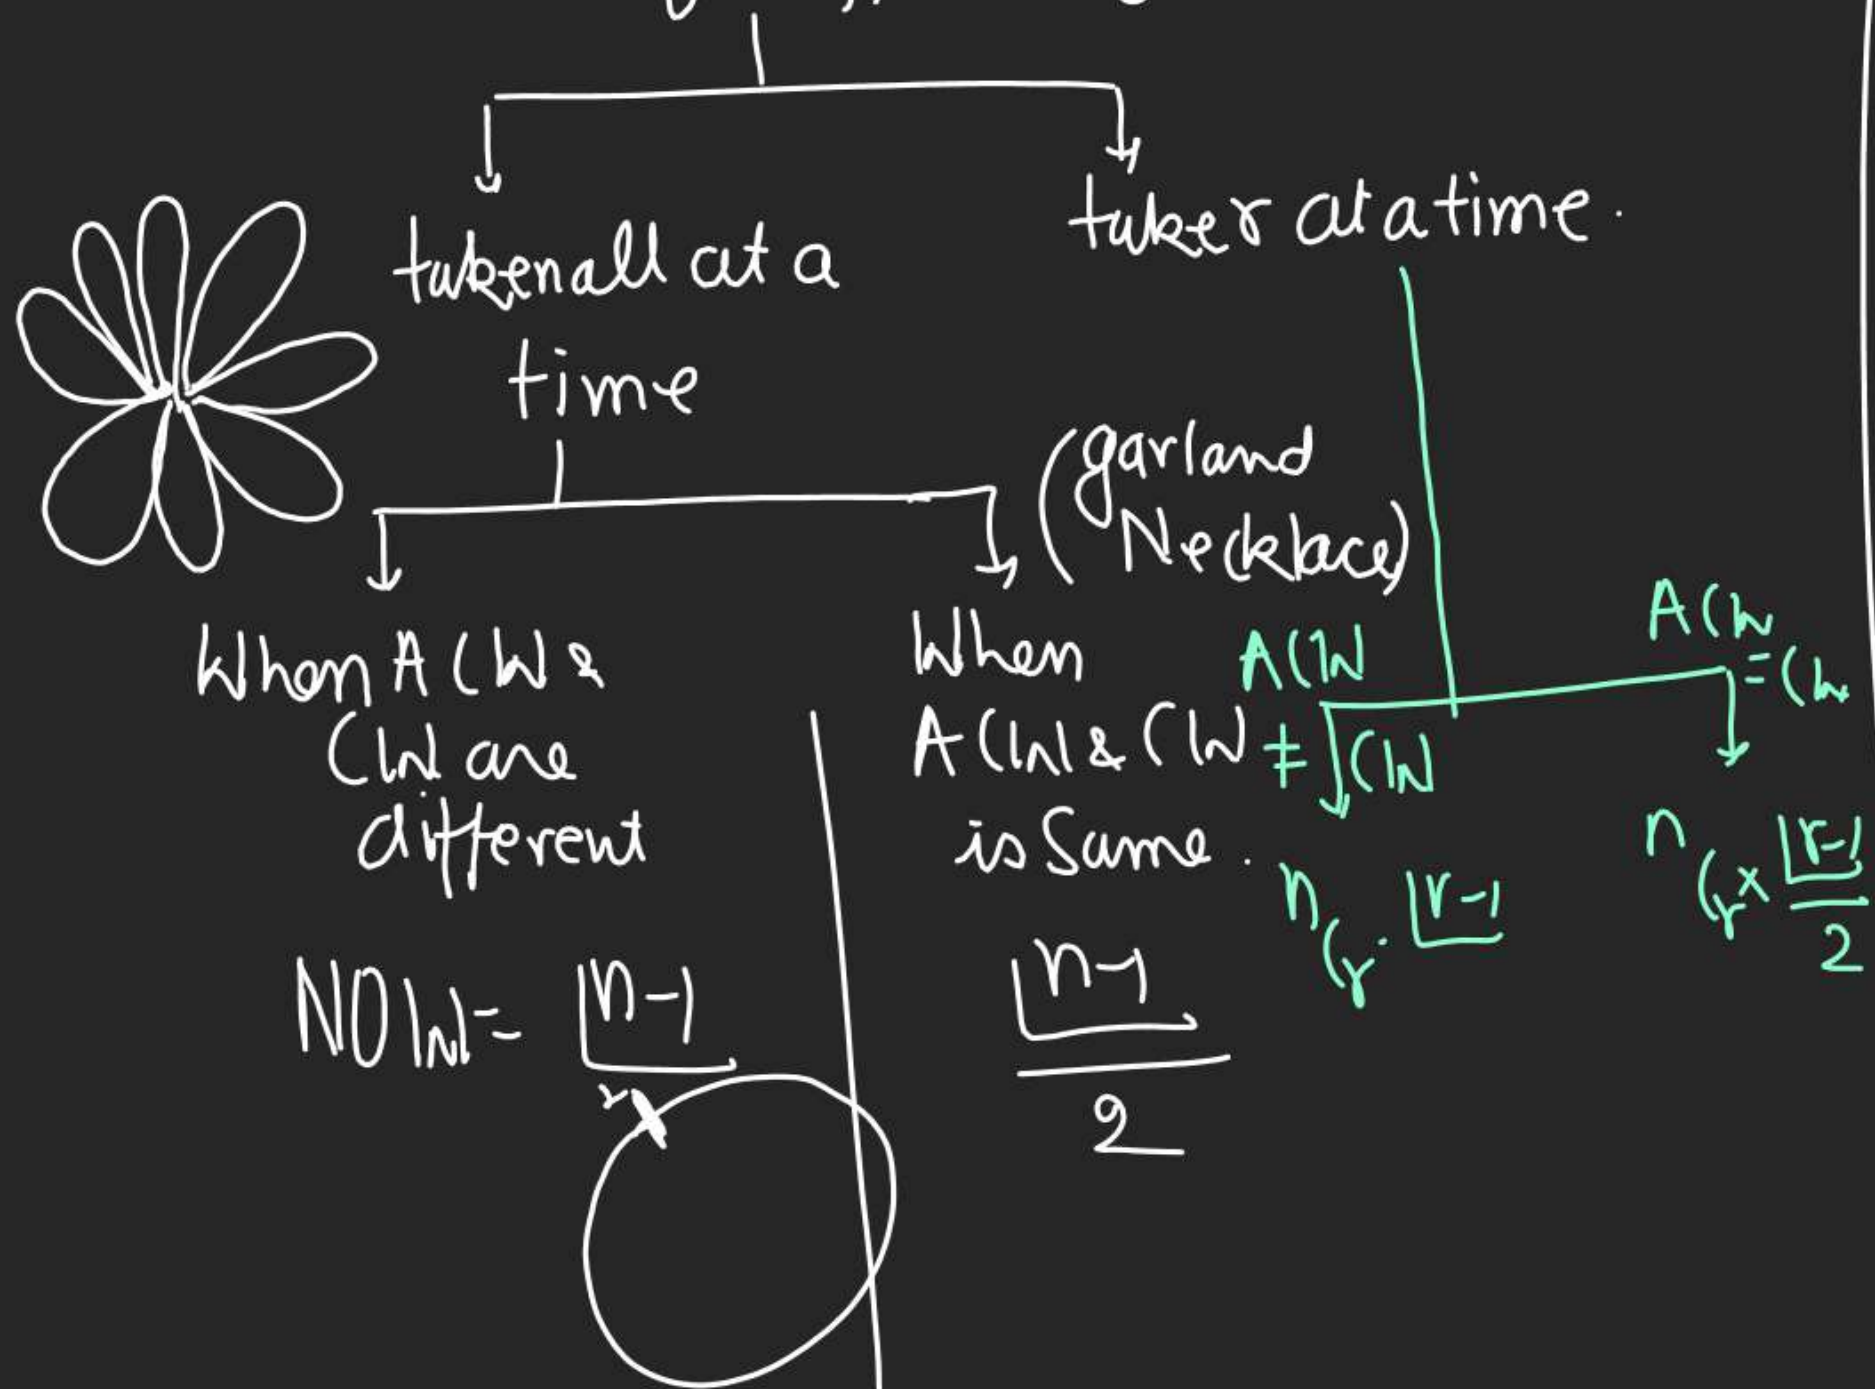 taken all at a
time
taken r at a time.
(garland
Necklace)
When ACW &
CW are
different
NOW = |n-1
When
ACW & CW
is Same.
|n-1
2
ACW
≠ CW
nCr . |r-1
ACW
= CW
nCr × |r-1
2